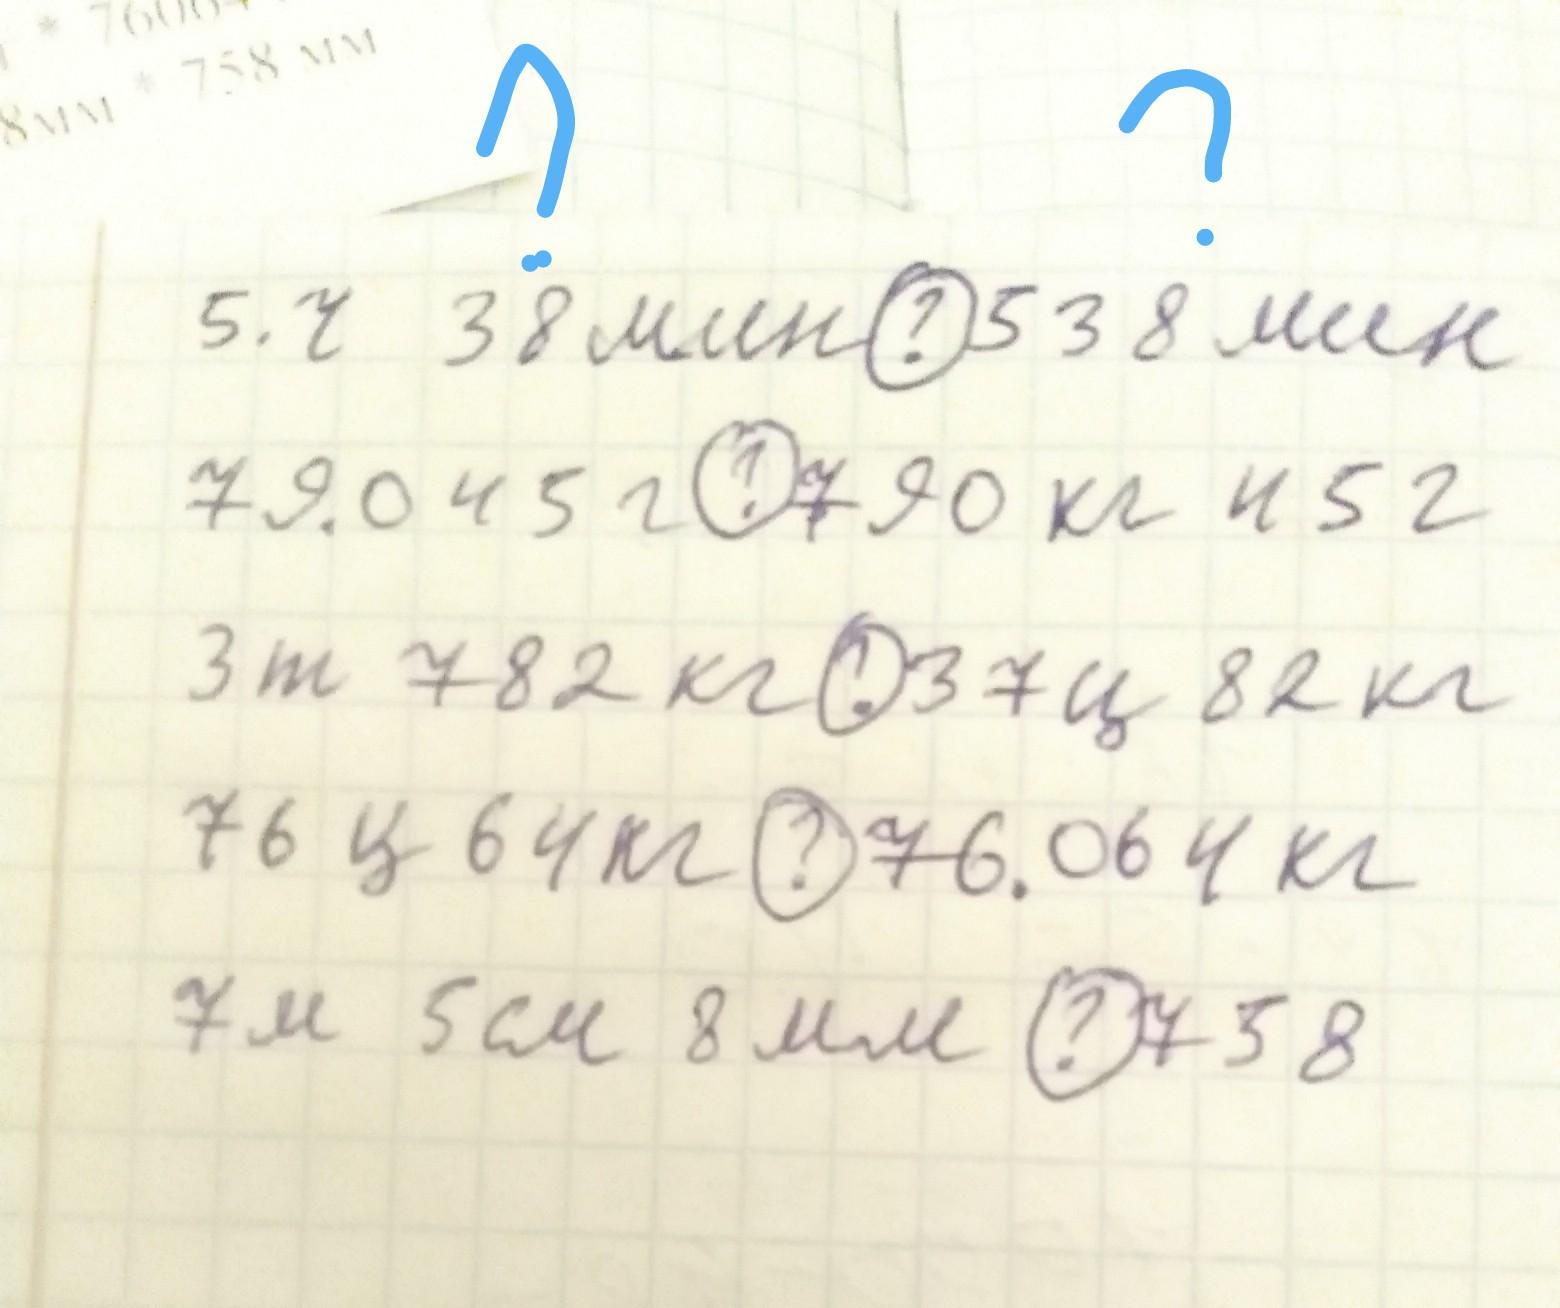 * 76064
8мм * 758 мм
? ?
5.ч 38 мин ? 538 мин
79.045 г ? 790 кг 45 г
3 т 782 кг ? 37 ц 82 кг
76 ц 64 кг ? 76.064 кг
7 м 5 см 8 мм ? 758